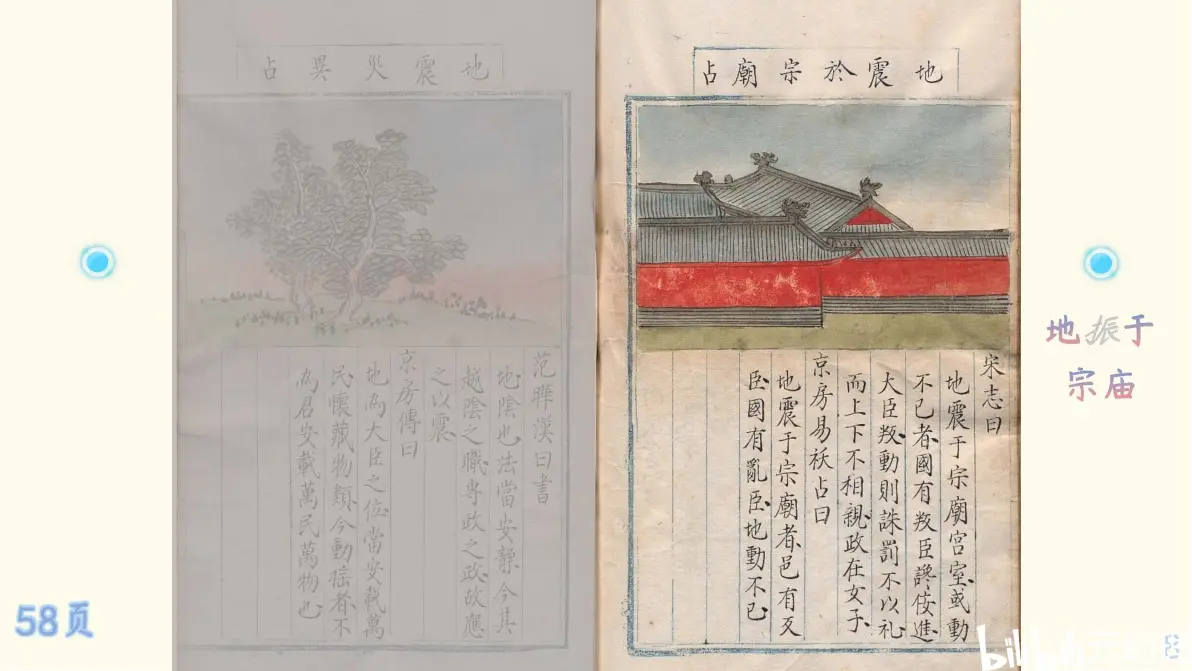 地震於宗廟占
宋志曰
地震于宗廟宫室或動
不已者國有叛臣讒佞進
大臣叛動則誅罰不以礼
而上下不相親政在女子
京房易祅占曰
地震于宗廟者邑有叐
臣國有亂臣地動不已
地震災異占
范曄漢曰書
地陰也法當安静今其
越陰之職專政之政故應
之以震
京房傳曰
地為大臣之位當安載萬
民懷藏物類今動揺者不
為君安載萬民萬物也
地振于
宗庙
58页